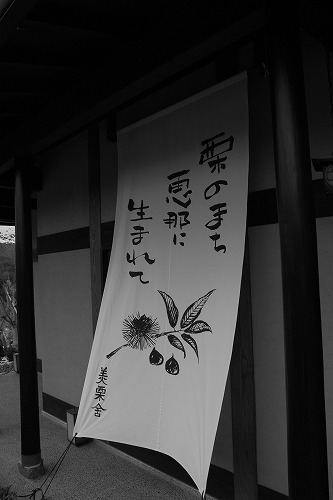 栗のまち
恵那に
生まれて
美栗舎